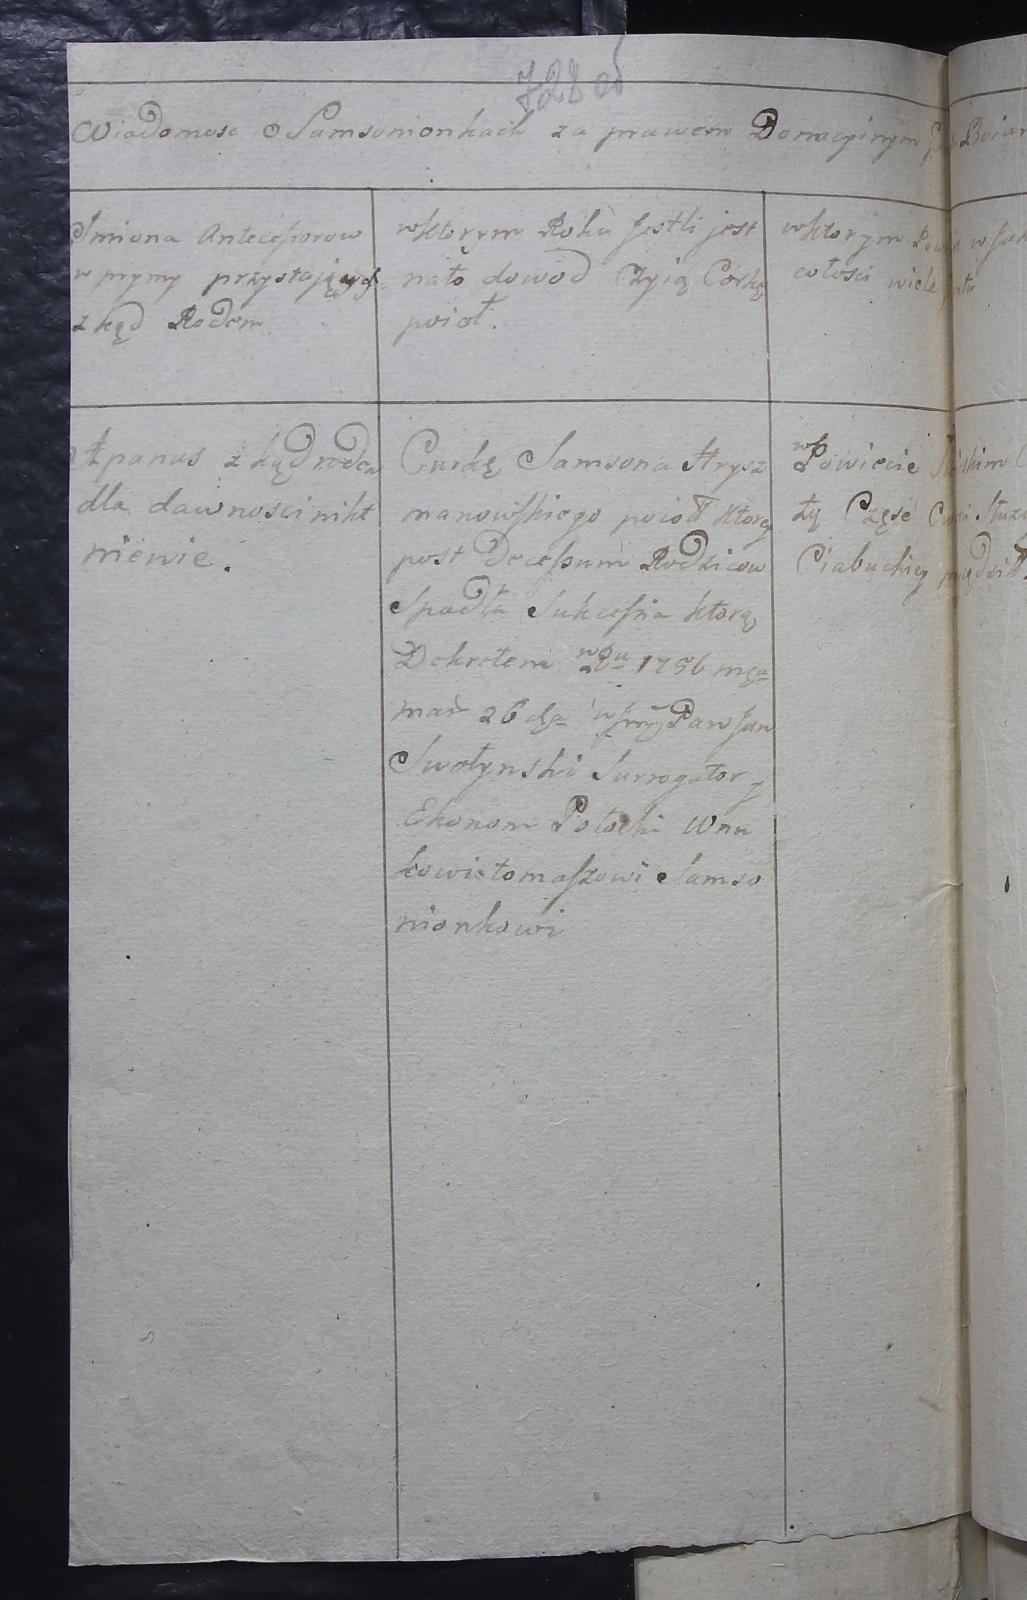 728 об
Wiadomosc o Samsonionkach za prawem Donacyinym
Jmiona Antecessorow
w prymy przystających
z kąd Rodem
wktorym Roku Jestli jest
nato dowod Czyią Corkę
poioł.
wktorym
cołosci wiele
Apanas z kąd rodem
dla dawnosci nikt
niewie.
Curkę Samsona Hrysz
manowskiego poioł ktorey
post Decessum Rodzicow
Spadła Sukcessia ktorą
Dekretem w Ru 1756 mca
mar 26 dja Pan Jan
Swołynski Surrogator y
Ekonom Połocki Wnu
kowi tomaszowi Samso
nionkowi
w Powiecie
ży Częsc
Ciabuckiey